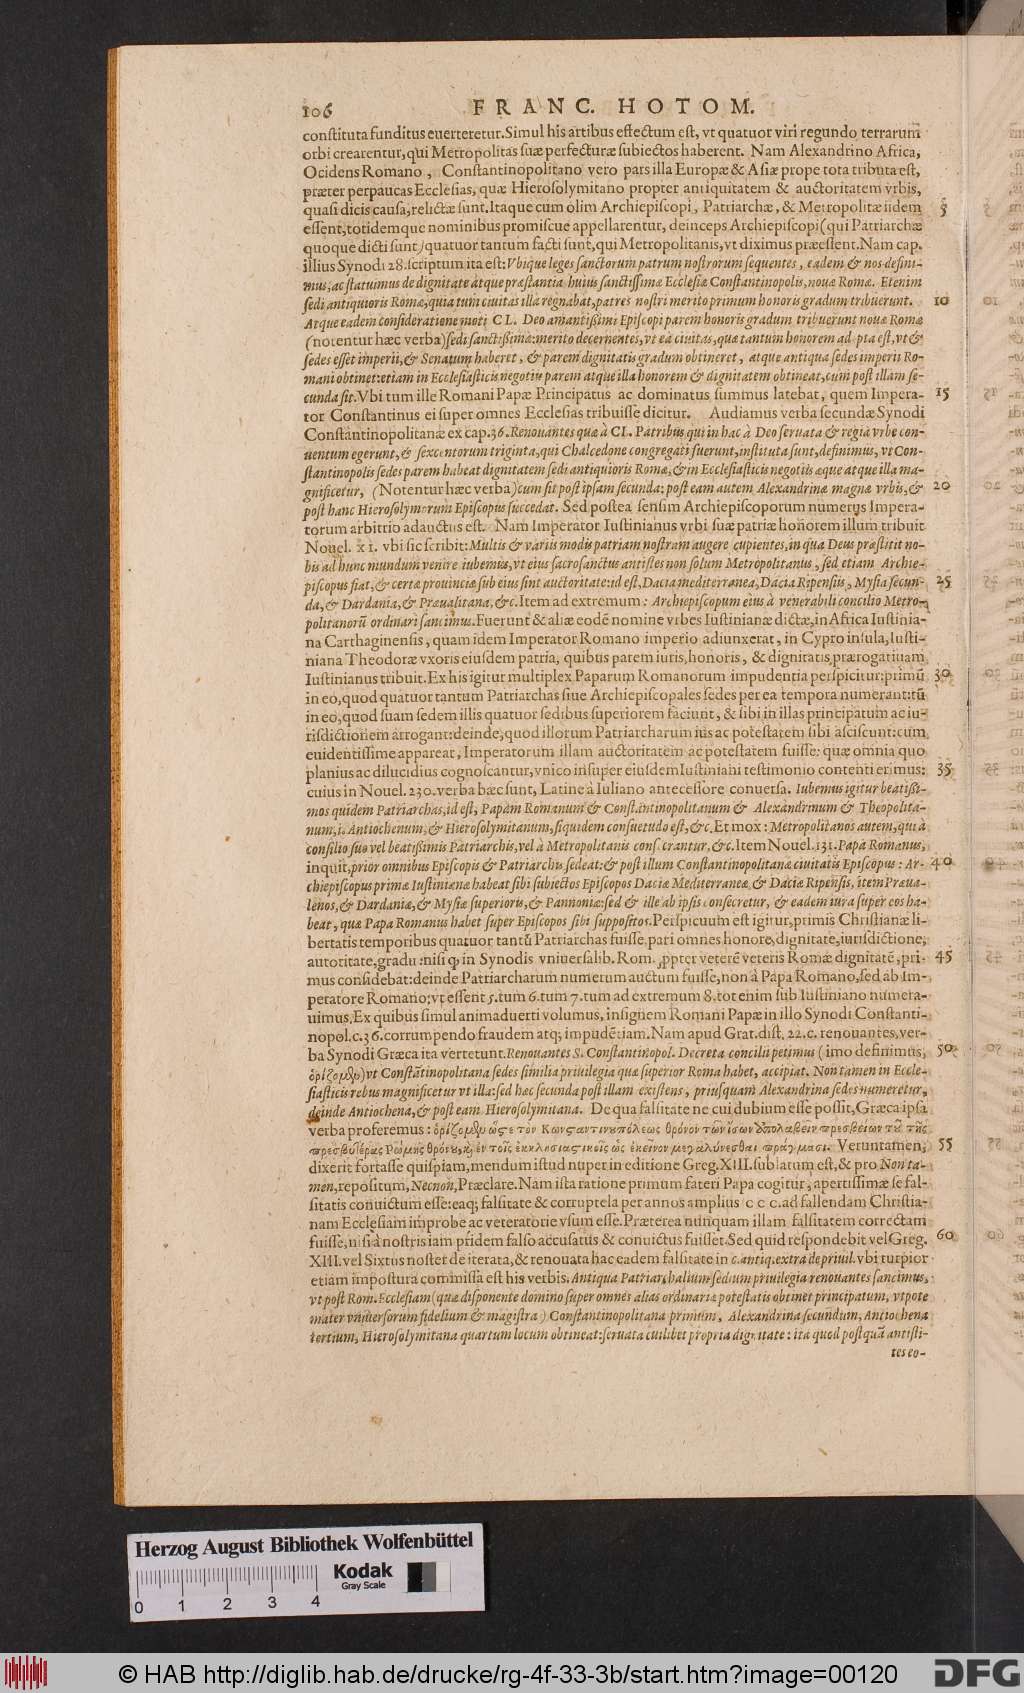 106 FRANC. HOTOM.
conſtituta funditus euerteretur. Simul his artibus effectum eſt, vt quatuor viri regundo terrarum
orbi crearentur, qui Metropolitas ſuæ perfecturæ ſubiectos haberent. Nam Alexandrino Africa,
Ocidens Romano, Conſtantinopolitano vero pars illa Europæ & Aſiæ prope tota tributa eſt,
præter perpaucas Eccleſias, quæ Hieroſolymitano propter antiquitatem & auctoritatem vrbis,
quaſi dicis cauſa, relictæ ſunt. Itaque cum olim Archiepiſcopi, Patriarchæ, & Metropolitæ iidem 5
eſſent, totidemque nominibus promiſcue appellarentur, deinceps Archiepiſcopi (qui Patriarchæ
quoque dicti ſunt) quatuor tantum facti ſunt, qui Metropolitanis, vt diximus præeſſent. Nam cap.
illius Synodi 28. ſcriptum ita eſt: Vbique leges ſanctorum patrum noſtrorum ſequentes, eadem & nos defini-
mus, ac ſtatuimus de dignitate atque præſtantia huius ſanctiſſimæ Eccleſiæ Conſtantinopolis, nouæ Romæ. Etenim
ſedi antiquioris Romæ, quia tum ciuitas illa regnabat, patres noſtri merito primum honoris gradum tribuerunt. 10
Atque eadem conſideratione moti CL. Deo amantiſſimi Epiſcopi parem honoris gradum tribuerunt nouæ Romæ
(notentur hæc verba) ſedi ſanctiſſimæ: merito decernentes, vt ea ciuitas, quæ tantum honorem adepta eſt, vt &
ſedes eſſet imperii, & Senatum haberet, & parem dignitatis gradum obtineret, atque antiqua ſedes imperii Ro-
mani obtinet: etiam in Eccleſiaſticis negotiis parem atque illa honorem & dignitatem obtineat, cum poſt illam ſe-
cunda ſit. Vbi tum ille Romani Papæ Principatus ac dominatus ſummus latebat, quem Impera- 15
tor Conſtantinus ei ſuper omnes Eccleſias tribuiſſe dicitur. Audiamus verba ſecundæ Synodi
Conſtantinopolitanæ ex cap. 36. Renouantes quæ à CL. Patribus qui in hac à Deo ſeruata & regia vrbe con-
uentum egerunt, & ſexcentorum triginta, qui Chalcedone congregati fuerunt, inſtituta ſunt, definimus, vt Con-
ſtantinopolis ſedes parem habeat dignitatem ſedi antiquioris Romæ, & in Eccleſiaſticis negotiis æque at que illa ma-
gnificetur, (Notentur hæc verba) cum ſit poſt ipſam ſecunda: poſt eam autem Alexandrinæ magnæ vrbis, & 20
poſt hanc Hieroſolymorum Epiſcopus ſuccedat. Sed poſtea ſenſim Archiepiſcoporum numerus Impera-
torum arbitrio adauctus eſt. Nam Imperator Iuſtinianus vrbi ſuæ patriæ honorem illum tribuit
Nouel. XI. vbi ſic ſcribit: Multis & variis modis patriam noſtram augere cupientes, in qua Deus præſtitit no-
bis ad hunc mundum venire iubemus, vt eius ſacroſanctus antiſtes non ſolum Metropolitanus, ſed etiam Archie-
piſcopus fiat, & certæ prouinciæ ſub eius ſint auctoritate: id eſt, Dacia mediterranea, Dacia Ripenſis, Myſia ſecun- 25
da, & Dardania, & Præualitana, &c. Item ad extremum: Archiepiſcopum eius à venerabili concilio Metro-
politanorū ordinari ſancimus. Fuerunt & aliæ eodē nomine vrbes Iuſtinianæ dictæ, in Africa Iuſtinia-
na Carthaginenſis, quam idem Imperator Romano imperio adiunxerat, in Cypro inſula, Iuſti-
niana Theodoræ vxoris eiuſdem patria, quibus parem iuris, honoris, & dignitatis, prærogatiuam
Iuſtinianus tribuit. Ex his igitur multiplex Paparum Romanorum impudentia perſpicitur: primū 30
in eo, quod quatuor tantum Patriarchas ſiue Archiepiſcopales ſedes per ea tempora numerantitū
in eo, quod ſuam ſedem illis quatuor ſedibus ſuperiorem faciunt, & ſibi in illas principatum ac iu-
riſdictionem arrogant: deinde, quod illorum Patriarcharum ius ac poteſtatem ſibi aſciſcunt: cum
euidentiſſime appareat, Imperatorum illam auctoritatem ac poteſtatem fuiſſe: quæ omnia quo
planius ac dilucidius cognoſcantur, vnico inſuper eiuſdem Iuſtiniani teſtimonio contenti erimus: 35
cuius in Nouel. 230. verba hæc ſunt, Latine à Iuliano anteceſſore conuerſa. Iubemus igitur beatiſſi-
mos quidem Patriarchas, id eſt, Papam Romanum & Conſtantinopolitanum & Alexandrinum & Theopolita-
num, i. Antiochenum, & Hieroſolymitanum, ſiquidem conſuetudo eſt, &c. Et mox: Metropolitanos autem, qui à
conſilio ſuo vel beatiſſimis Patriarchis, vel à Metropolitanis conſecrantur, &c. Item Nouel. 131. Papa Romanus,
inquit, prior omnibus Epiſcopis & Patriarchis ſedeat: & poſt illum Conſtantinopolitanæ ciuitatis Epiſcopus: Ar- 40
chiepiſcopus primæ Iuſtinianæ habeat ſibi ſubiectos Epiſcopos Daciæ Mediterraneæ, & Daciæ Ripenſis, item Præua-
lenos, & Dardaniæ, & Myſiæ ſuperioris, & Pannoniæ: ſed & ille ab ipſis conſecretur, & eadem iura ſuper eos ha-
beat, quæ Papa Romanus habet ſuper Epiſcopos ſibi ſuppoſitos. Perſpicuum eſt igitur, primis Chriſtianæ li-
bertatis temporibus quatuor tantū Patriarchas fuiſſe, pari omnes honore, dignitate, iuriſdictione,
autoritate, gradu: niſi ꝙ in Synodis vniuerſalib. Rom. ꝓpter veterē veteris Romæ dignitatē, pri- 45
mus conſidebat: deinde Patriarcharum numerum auctum fuiſſe, non à Papa Romano, ſed ab Im-
peratore Romano: vt eſſent 5. tum 6. tum 7. tum ad extremum 8. tot enim ſub Iuſtiniano numera-
uimus. Ex quibus ſimul animaduerti volumus, inſignem Romani Papæ in illo Synodi Conſtanti-
nopol. c. 36. corrumpendo fraudem atq; impudētiam. Nam apud Grat. diſt. 22. c. renouantes, ver-
ba Synodi Græca ita vertetunt. Renouantes S. Conſtantinopol. Decreta concilii petimus (imo definimus, 50
ὁρίζομεν) vt Conſtātinopolitana ſedes ſimilia priuilegia quæ ſuperior Roma habet, accipiat. Non tamen in Eccle-
ſiaſticis rebus magnificetur vt illa: ſed hæc ſecunda poſt illam exiſtens, priuſquam Alexandrina ſedes numeretur,
deinde Antiochena, & poſt eam Hieroſolymitana. De qua falſitate ne cui dubium eſſe poſſit, Græca ipſa
verba proferemus: ὁρίζομεν ὥςτε τὸν Κωνςαντινυπόλεως θρόνον τῶν ἴσων ἀπολαβεῖν πρεσβείων τȣ͂ τῆς
πρεσβυτέρας Ρώμης θρόνȣ, καὶ ἐν τοῖς ἐκκλησιαςικοῖς ὡς ἐκεῖνον μεγαλύνεσθαι πράγμασι. Veruntamen, 55
dixerit fortaſſe quiſpiam, mendum iſtud nuper in editione Greg. XIII. ſublatum eſt, & pro Non ta-
men, repoſitum, Necnon, Præclare. Nam iſta ratione primum fateri Papa cogitur, apertiſſimæ ſe fal-
ſitatis conuictum eſſe: eaq; falſitate & corruptela per annos amplius CCC. ad fallendam Chriſtia-
nam Eccleſiam improbe ac veteratorie vſum eſſe. Præterea nunquam illam falſitatem correctam
fuiſſe, niſi à noſtris iam pridem falſo accuſatus & conuictus fuiſſet. Sed quid reſpondebit vel Greg. 60
XIII. vel Sixtus noſter de iterata, & renouata hac eadem falſitate in c. antiq. extra de priuil. vbi turpior
etiam impoſtura commiſſa eſt his verbis. Antiqua Patriarchalium ſedium priuilegia renouantes ſancimus,
vt poſt Rom. Eccleſiam (quæ diſponente domino ſuper omnes alias ordinariæ poteſtatis obtinet principatum, vtpote
mater vniuerſorum fidelium & magiſtra) Conſtantinopolitana primum, Alexandrina ſecundum, Antiochena
tertium, Hieroſolymitana quartum locum obtineat: ſeruata cuilibet propria dignitate: ita quod poſtquā antiſti-
tes eo-
Herzog August Bibliothek Wolfenbüttel
Kodak
Gray Scale
0 1 2 3 4
© HAB http://diglib.hab.de/drucke/rg-4f-33-3b/start.htm?image=00120
DFG